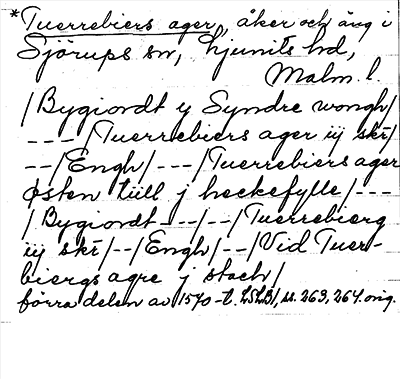 *Tuerrebiers ager, åker och äng i
Sjörups sn, Ljunits hd,
Malm. l.
/Bygiordt y Syndre wongh/
---/Tuerrebiers ager iij skr/
--/Engh/---/Tuerrebiers ager
østen tiill j heckefylle/---
/Bygiordt---/--/Tuerrebierg
iij skr/--/Engh/--/Vid Tuer-
biergs agre j stach/
förra delen av 1570-t. LSLB1, ss. 263, 264. orig.